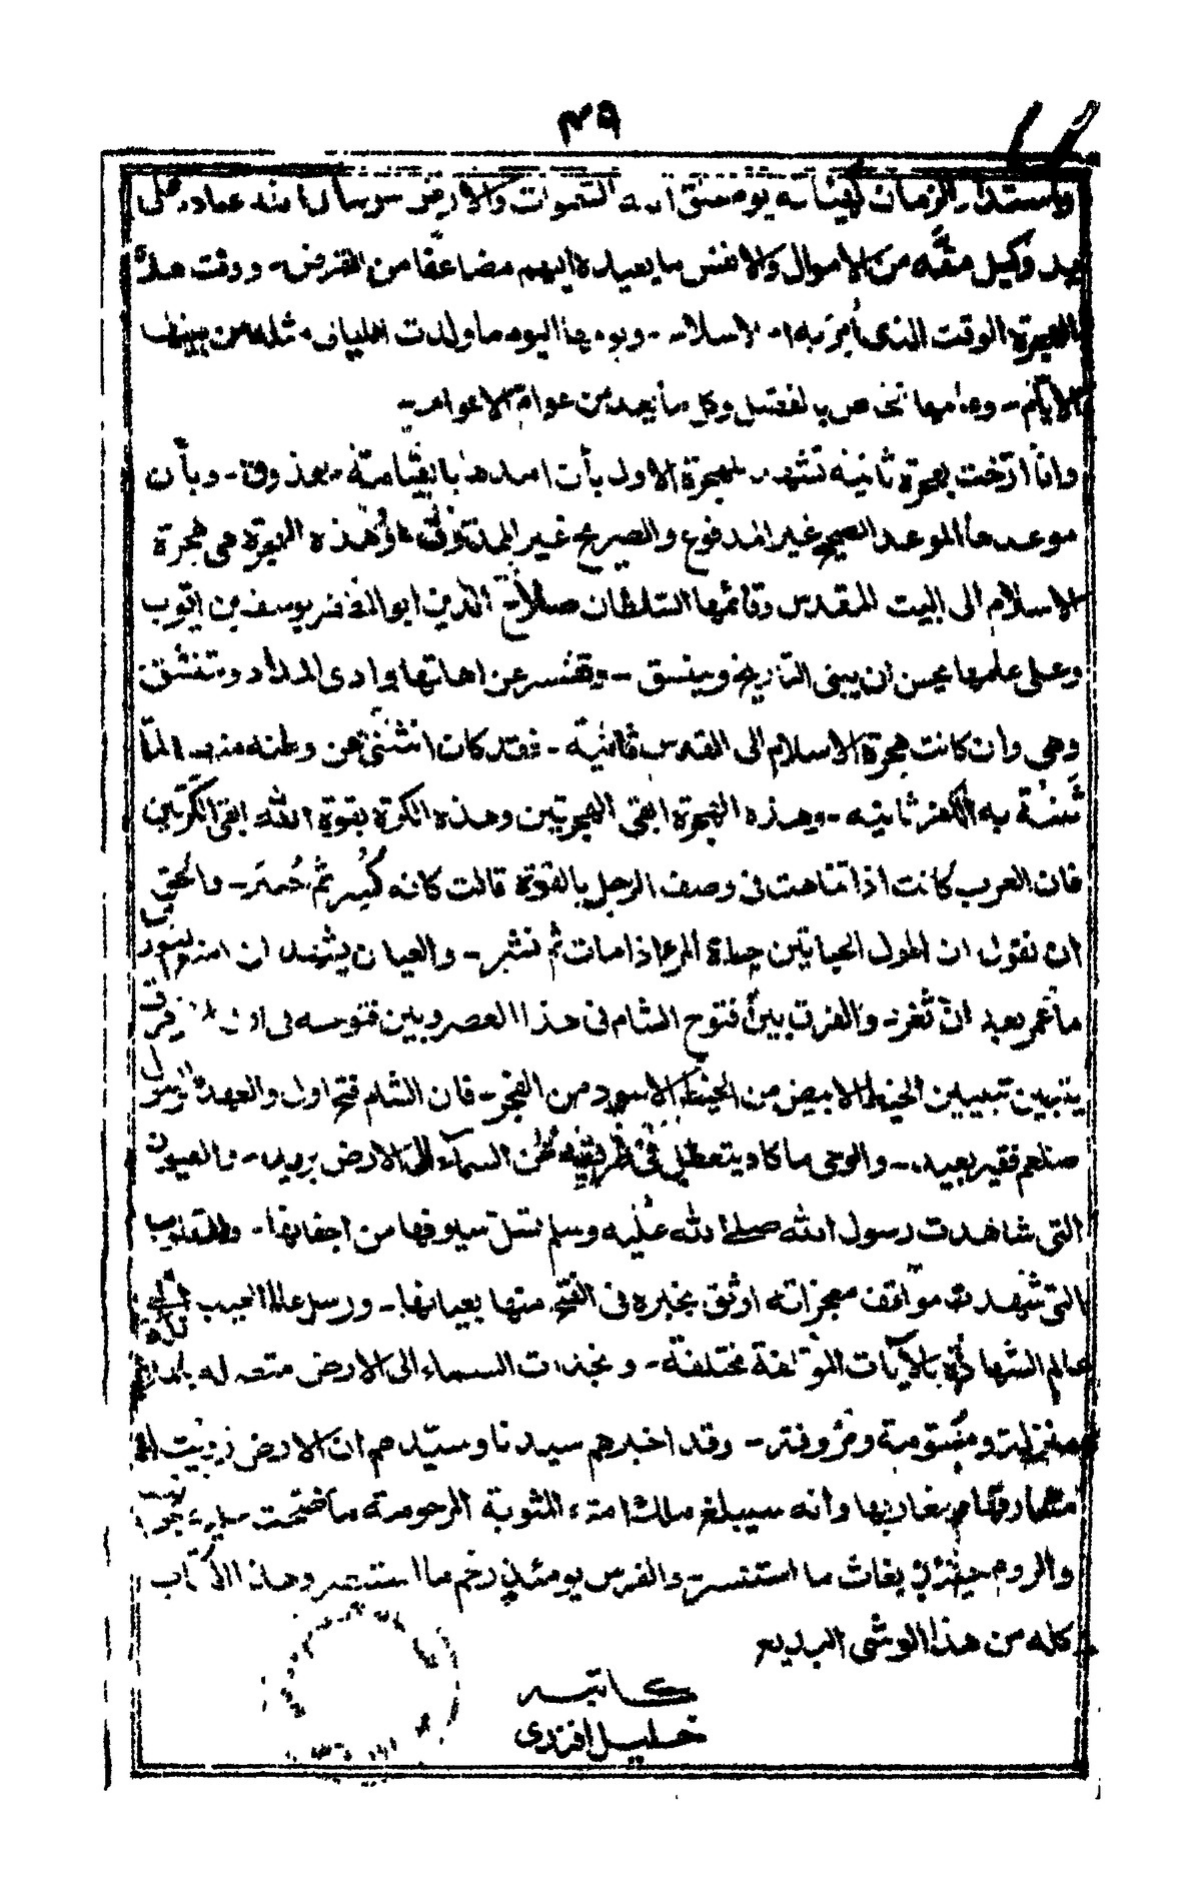 ٤٩
واستدار الزمان كهيئته يوم خلق الله السموات والارض
من الاموال والانفس ما يعيده اليهم مضاعفا من القرض - ووقت هذه
الهجرة الوقت الذى أمر به الاسلام - ويومها اليوم ما ولدت الليالى مثله من
الايام - وعامها الخاص بالفضل وكل ما بعده من عوام الاعوام -
وانا ارخت بهجرة ثانية تشهد للهجرة الاولى بأن امدها بالقيامة معذوق - وبأن
موعدها الموعد الصحيح غير المدفوع والصريح غير الممذوق - وهذه الهجرة هى هجرة
الاسلام الى البيت المقدس وقائمها السلطان صلاح الدين ابو المظفر يوسف بن ايوب
وعلى عامها يحسن ان يبنى التاريخ وينسق - وتنشق
وهى وان كانت هجرة الاسلام الى القدس ثانية - فقد كان انثنى عن وطنه منه لما
ثنته يد الكفر ثانيه - وهذه الهجرة ابقى الهجرتين وهذه الكرة بقوة الله ابقى الكرتين
فان العرب كانت اذا تناهت فى وصف الرجل بالقوة قالت كانه كسر ثم جبر - والحق
ان نقول ان اطول الحياتين حياة المرء اذا مات ثم نشر - والعيان يشهد ان
ما عمر بعد ان ثغر - والفرق بين فتوح الشام فى هذا العصر وبين فتوحه فى اول
يتبين تبيين الخيط الابيض من الخيط الاسود من الفجر - فان الشام فتح اول والعهد بالرسول
صلعم غير بعيد - والوحى ما كاد يتعطل فى طريقه من السماء الى الارض بريد - والعيون
التى شاهدت رسول الله صلى الله عليه وسلم تسل سيوفها من اجفانها - والقلوب
التى شهدت مواقف معجزاته اوثق بخبره فى الفتح منها بعيانها - ورسل عالم الغيب الى
عالم الشهادة بالآيات المؤتلفة مختلفة - ونجدات السماء الى الارض متصله
منزلة ومسومة ومردفة - وقد اخبرهم سيدنا وسيدهم ان الارض زويت له
مشارقها ومغاربها وانه سيبلغ ملك امته المثوبة المرحومة
والروم حينئذ بغاث ما استنسر والفرس يومئذ رخم ما استنصر وهذا الكتاب
كله من هذا الوشى البديع
كاتبه
خليل افندى